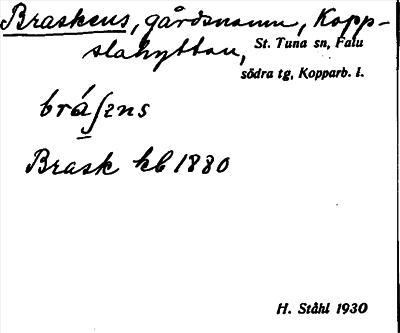 Braskens, gårdsnamn, Kopp-
slahyttan, St. Tuna sn, Falu
södra tg, Kopparb. l.
brásens
Brask kb 1880
H. Ståhl 1930